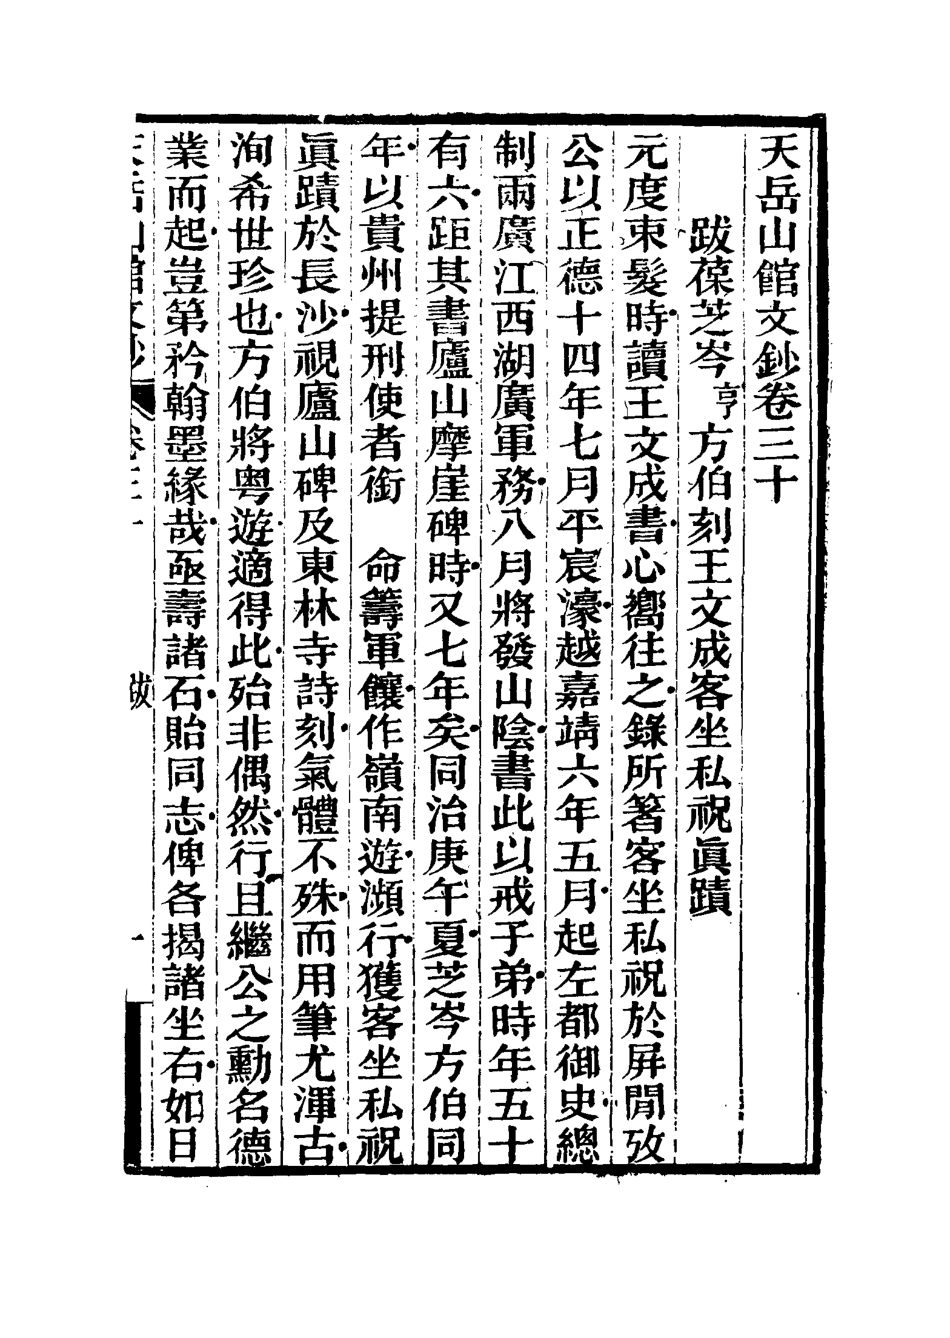 天岳山館文鈔卷三十
跋葆芝岑亨方伯刻王文成客坐私祝眞蹟
元度束髮時讀王文成書心嚮往之錄所著客坐私祝於屏閒攷
公以正德十四年七月平宸濠越嘉靖六年五月起左都御史總
制兩廣江西湖廣軍務八月將發山陰書此以戒子弟時年五十
有六距其書廬山摩崖碑時又七年矣同治庚午夏芝岑方伯同
年以貴州提刑使者銜　命籌軍饟作嶺南遊瀕行獲客坐私祝
眞蹟於長沙視廬山碑及東林寺詩刻氣體不殊而用筆尤渾古
洵希世珍也方伯將粤遊適得此殆非偶然行且繼公之勳名德
業而起豈第矜翰墨緣哉亟壽諸石貽同志俾各揭諸坐右如日
天岳山館文鈔　卷三十　跋　一